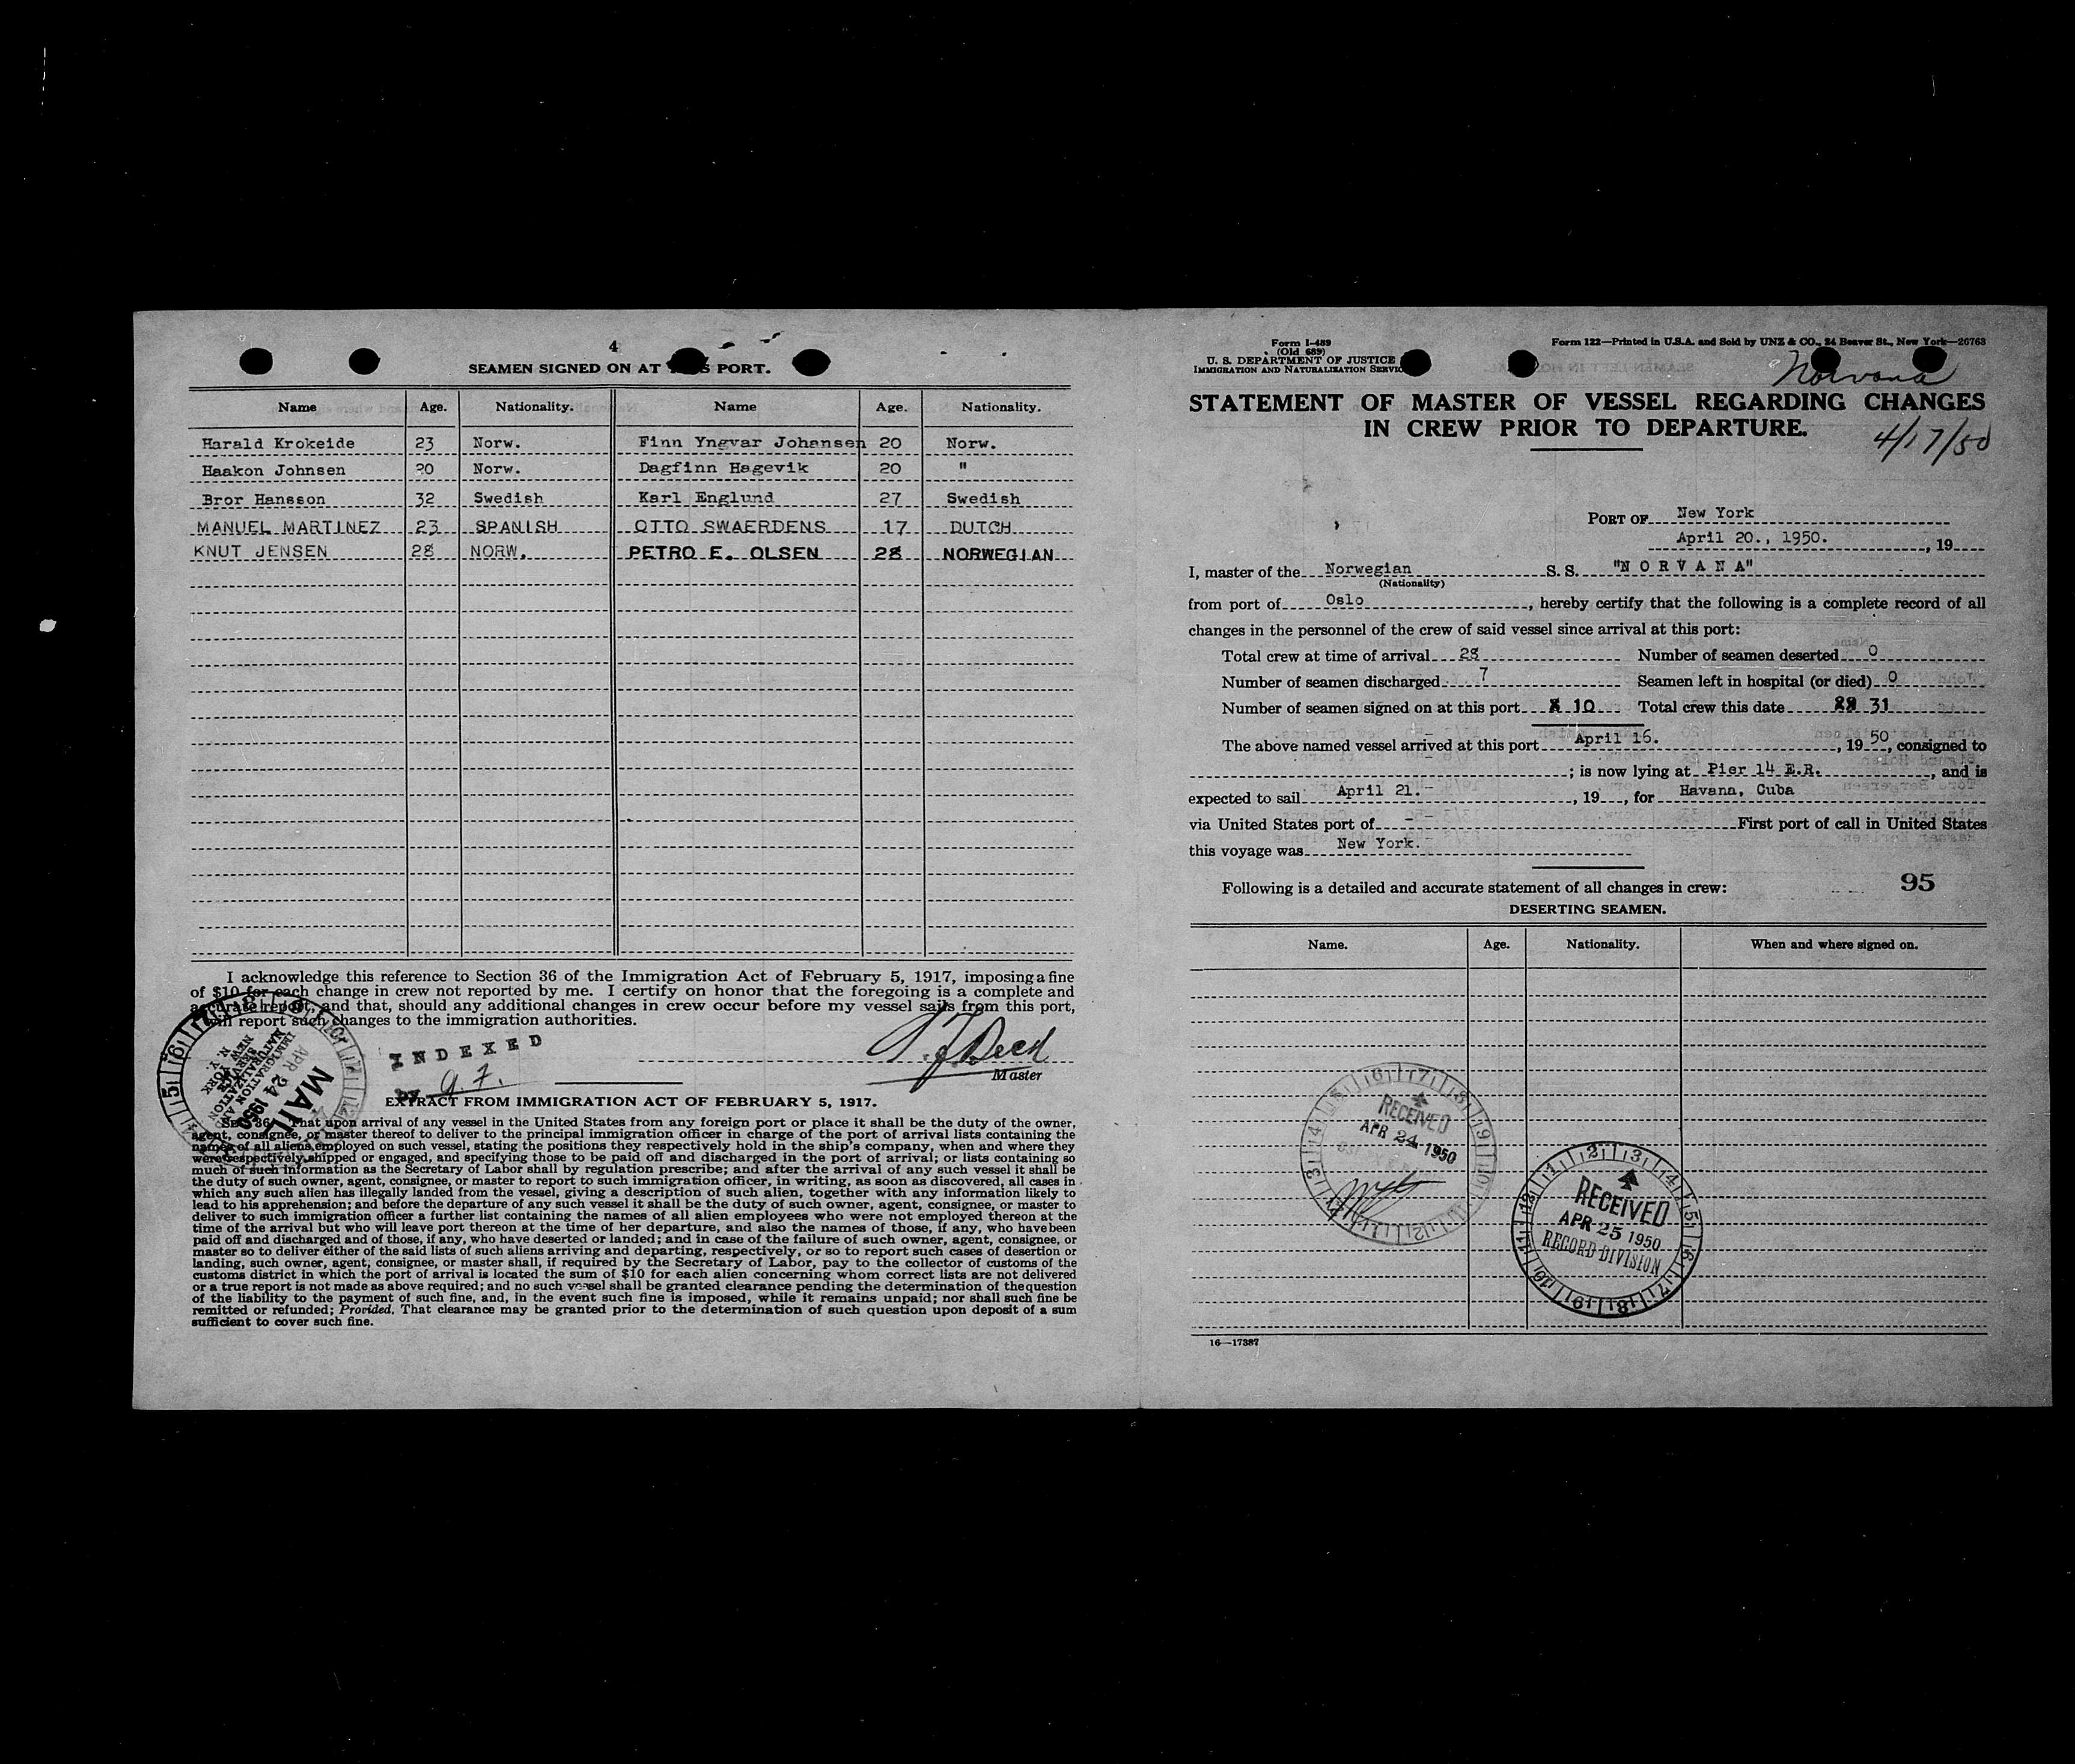 4
SEAMEN SIGNED ON AT THIS PORT.
Name Age. Nationality. Name Age. Nationality.
Harald Krokeide 23 Norw. Finn Yngvar Johansen 20 Norw.
Haakon Johnsen 20 Norw. Dagfinn Hagevik 20 "
Bror Hansson 32 Swedish Karl Englund 27 Swedish
MANUEL MARTINEZ 23 SPANISH OTTO SWAERDENS 17 DUTCH
KNUT JENSEN 28 NORW. PETRO E. OLSEN 28 NORWEGIAN
I acknowledge this reference to Section 36 of the Immigration Act of February 5, 1917, imposing a fine
of $10 for each change in crew not reported by me. I certify on honor that the foregoing is a complete and
accurate report, and that, should any additional changes in crew occur before my vessel sails from this port,
I will report such changes to the immigration authorities.
INDEXED
by
Master
MAIL
APR 24 1950
IMMIGRATION AND
NATURALIZATION
SERVICE
NEW YORK
N. Y.
EXTRACT FROM IMMIGRATION ACT OF FEBRUARY 5, 1917.
Sec. 36. That upon arrival of any vessel in the United States from any foreign port or place it shall be the duty of the owner,
agent, consignee, or master thereof to deliver to the principal immigration officer in charge of the port of arrival lists containing the
names of all aliens employed on such vessel, stating the positions they respectively hold in the ship's company, when and where they
were respectively shipped or engaged, and specifying those to be paid off and discharged in the port of arrival; or lists containing so
much of such information as the Secretary of Labor shall by regulation prescribe; and after the arrival of any such vessel it shall be
the duty of such owner, agent, consignee, or master to report to such immigration officer, in writing, as soon as discovered, all cases in
which any such alien has illegally landed from the vessel, giving a description of such alien, together with any information likely to
lead to his apprehension; and before the departure of any such vessel it shall be the duty of such owner, agent, consignee, or master to
deliver to such immigration officer a further list containing the names of all alien employees who were not employed thereon at the
time of the arrival but who will leave port thereon at the time of her departure, and also the names of those, if any, who have been
paid off and discharged and of those, if any, who have deserted or landed; and in case of the failure of such owner, agent, consignee, or
master so to deliver either of the said lists of such aliens arriving and departing, respectively, or so to report such cases of desertion or
landing, such owner, agent, consignee, or master shall, if required by the Secretary of Labor, pay to the collector of customs of the
customs district in which the port of arrival is located the sum of $10 for each alien concerning whom correct lists are not delivered
or a true report is not made as above required; and no such vessel shall be granted clearance pending the determination of the question
of the liability to the payment of such fine, and, in the event such fine is imposed, while it remains unpaid; nor shall such fine be
remitted or refunded; Provided, That clearance may be granted prior to the determination of such question upon deposit of a sum
sufficient to cover such fine.
Form I-489
(Old 689)
U. S. DEPARTMENT OF JUSTICE
IMMIGRATION AND NATURALIZATION SERVICE
Form 122—Printed in U.S.A. and Sold by UNZ & CO., 24 Beaver St., New York—26763
Norvana
STATEMENT OF MASTER OF VESSEL REGARDING CHANGES
IN CREW PRIOR TO DEPARTURE.
4/17/50
PORT OF New York
April 20., 1950. , 19
I, master of the Norwegian S. S. "N O R V A N A"
(Nationality)
from port of Oslo , hereby certify that the following is a complete record of all
changes in the personnel of the crew of said vessel since arrival at this port:
Total crew at time of arrival 28 Number of seamen deserted 0
Number of seamen discharged 7 Seamen left in hospital (or died) 0
Number of seamen signed on at this port 10 Total crew this date 31
The above named vessel arrived at this port April 16. , 19 50, consigned to
; is now lying at Pier 14 E.R. , and is
expected to sail April 21.- , 19 , for Havana, Cuba
via United States port of - First port of call in United States
this voyage was New York.
Following is a detailed and accurate statement of all changes in crew: 95
DESERTING SEAMEN.
Name. Age. Nationality. When and where signed on.
RECEIVED
APR 24 1950
RECEIVED
APR 25 1950
RECORD DIVISION
16—17387